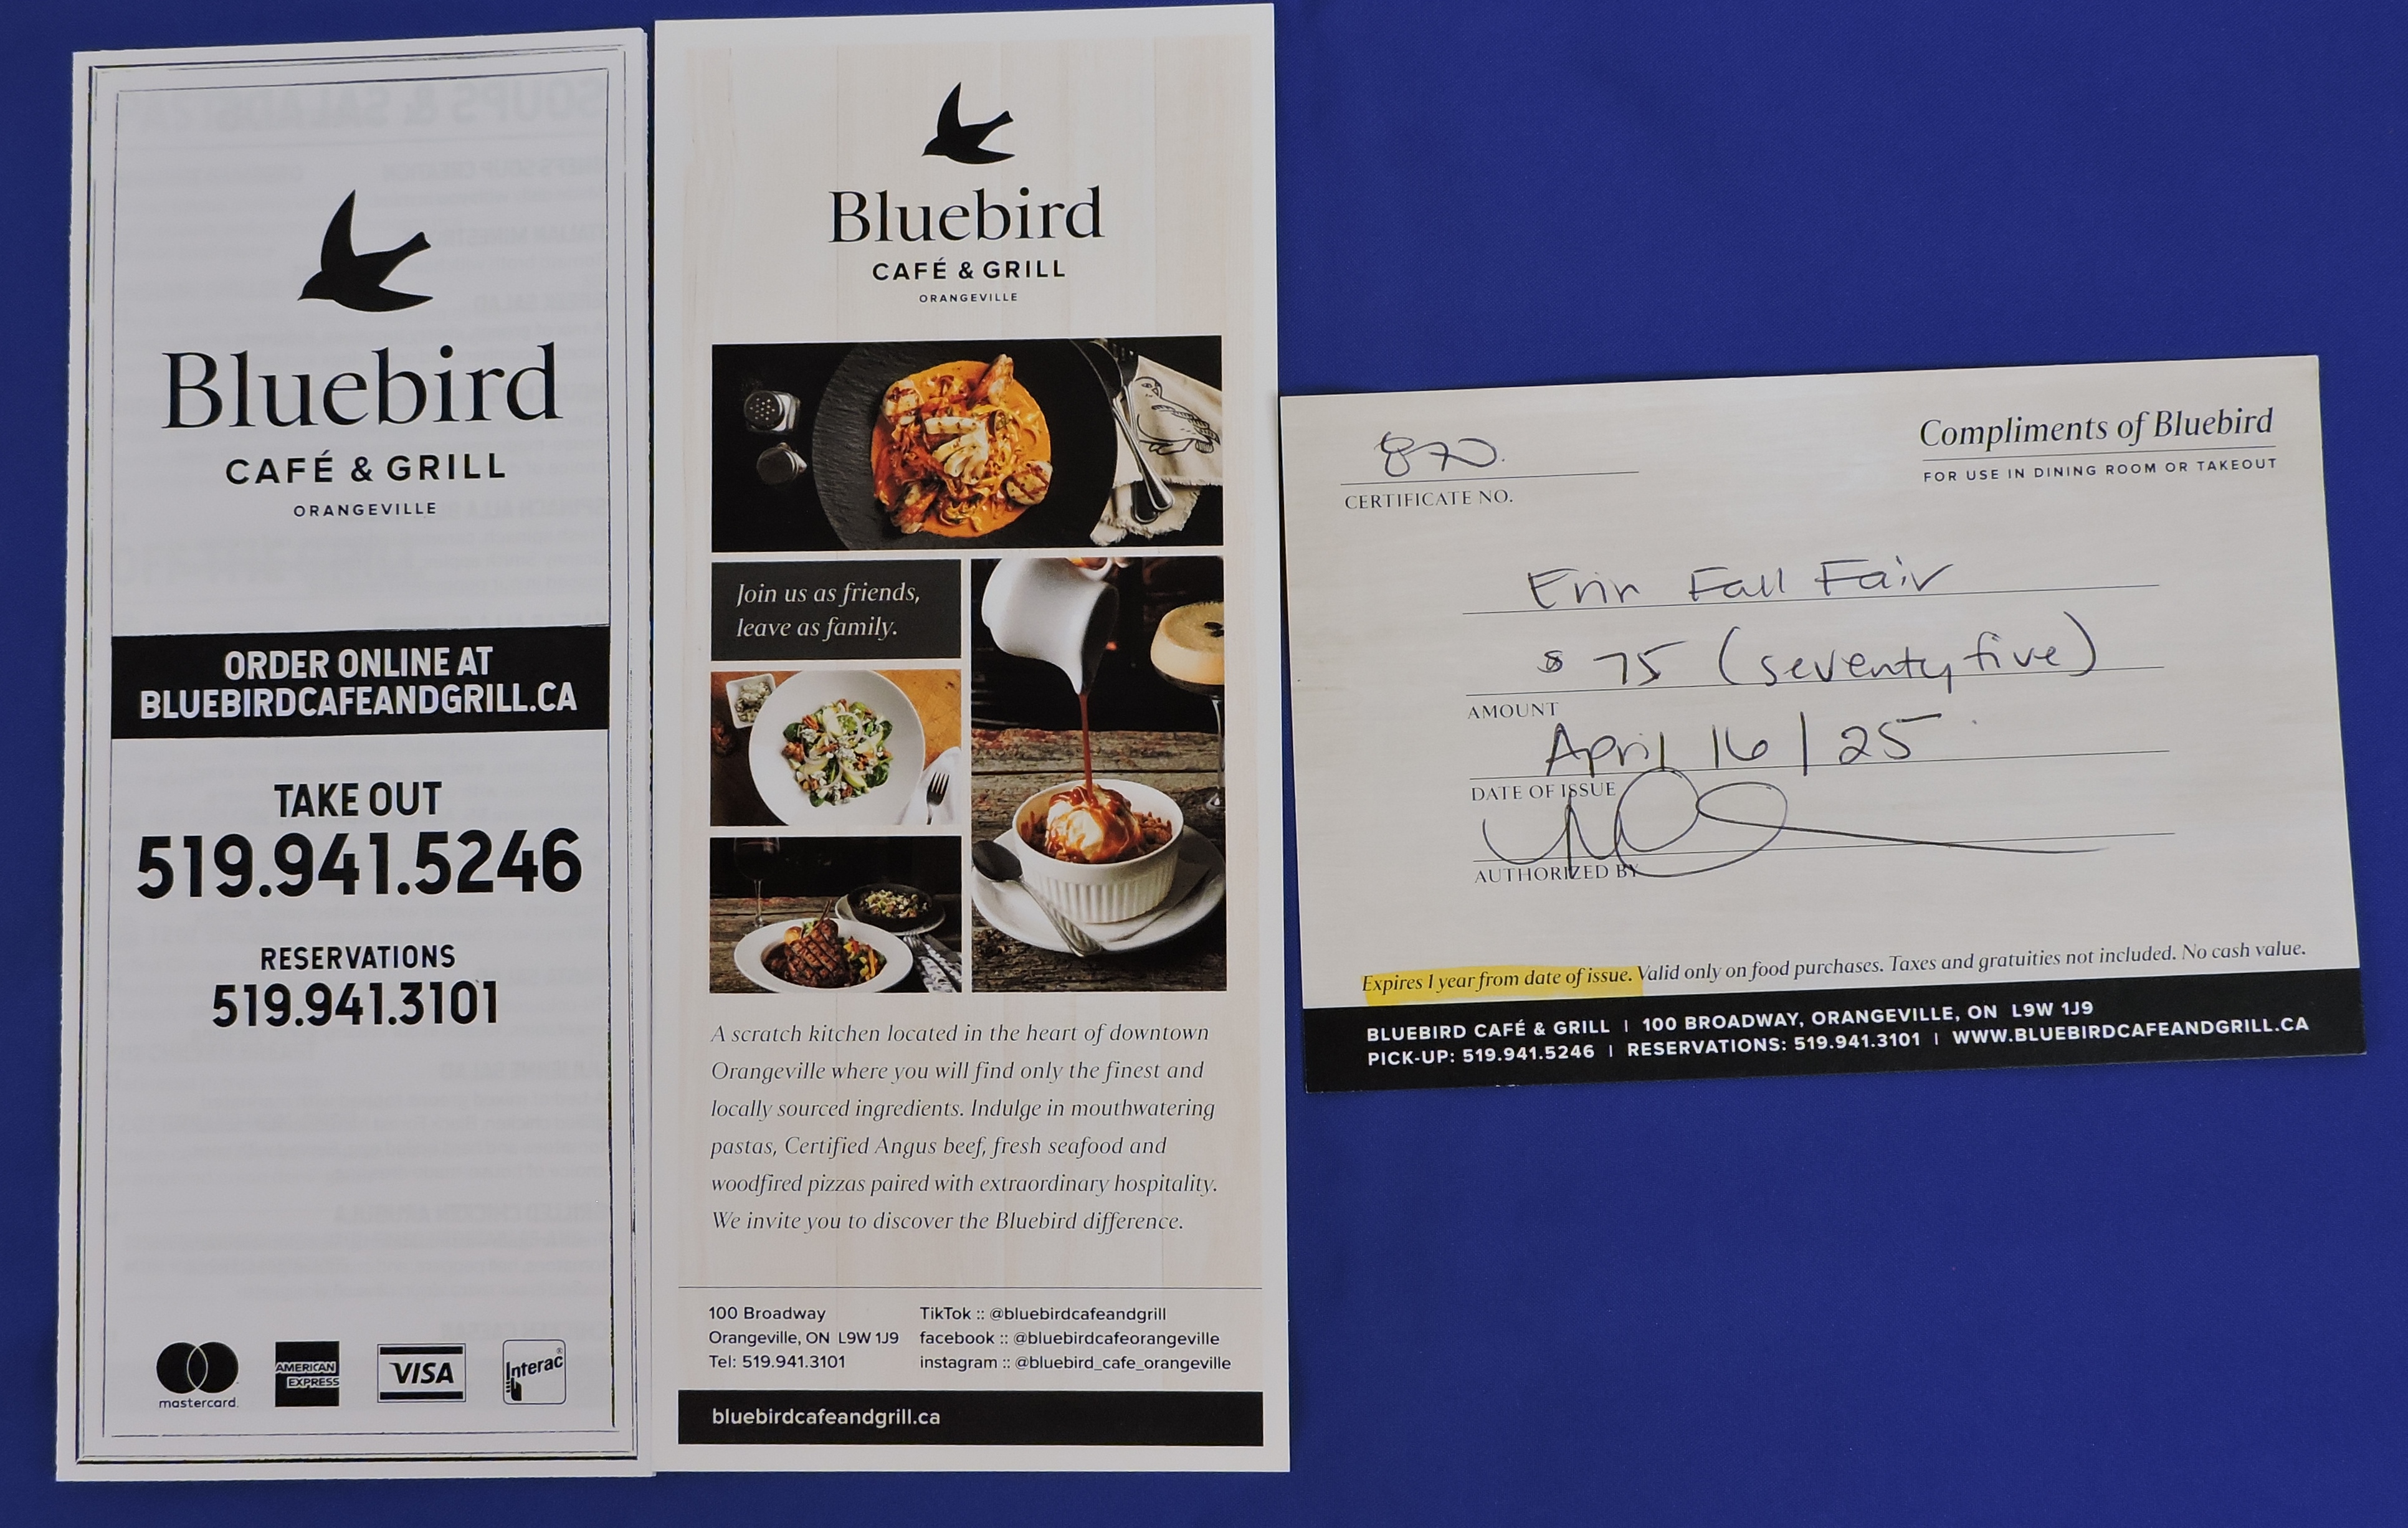 Bluebird
CAFÉ & GRILL
ORANGEVILLE
ORDER ONLINE AT
BLUEBIRDCAFEANDGRILL.CA
TAKE OUT
519.941.5246
RESERVATIONS
519.941.3101
mastercard.
AMERICAN
EXPRESS
VISA
Interac
Bluebird
CAFÉ & GRILL
ORANGEVILLE
Join us as friends,
leave as family.
A scratch kitchen located in the heart of downtown
Orangeville where you will find only the finest and
locally sourced ingredients. Indulge in mouthwatering
pastas, Certified Angus beef, fresh seafood and
woodfired pizzas paired with extraordinary hospitality.
We invite you to discover the Bluebird difference.
100 Broadway
Orangeville, ON L9W 1J9
Tel: 519.941.3101
TikTok :: @bluebirdcafeandgrill
facebook :: @bluebirdcafeorangeville
instagram :: @bluebird_cafe_orangeville
bluebirdcafeandgrill.ca
870.
CERTIFICATE NO.
Compliments of Bluebird
FOR USE IN DINING ROOM OR TAKEOUT
Erin Fall Fair
$ 75 (seventy five)
AMOUNT
April 16 | 25
DATE OF ISSUE
AUTHORIZED BY
Expires 1 year from date of issue. Valid only on food purchases. Taxes and gratuities not included. No cash value.
BLUEBIRD CAFÉ & GRILL | 100 BROADWAY, ORANGEVILLE, ON L9W 1J9
PICK-UP: 519.941.5246 | RESERVATIONS: 519.941.3101 | WWW.BLUEBIRDCAFEANDGRILL.CA